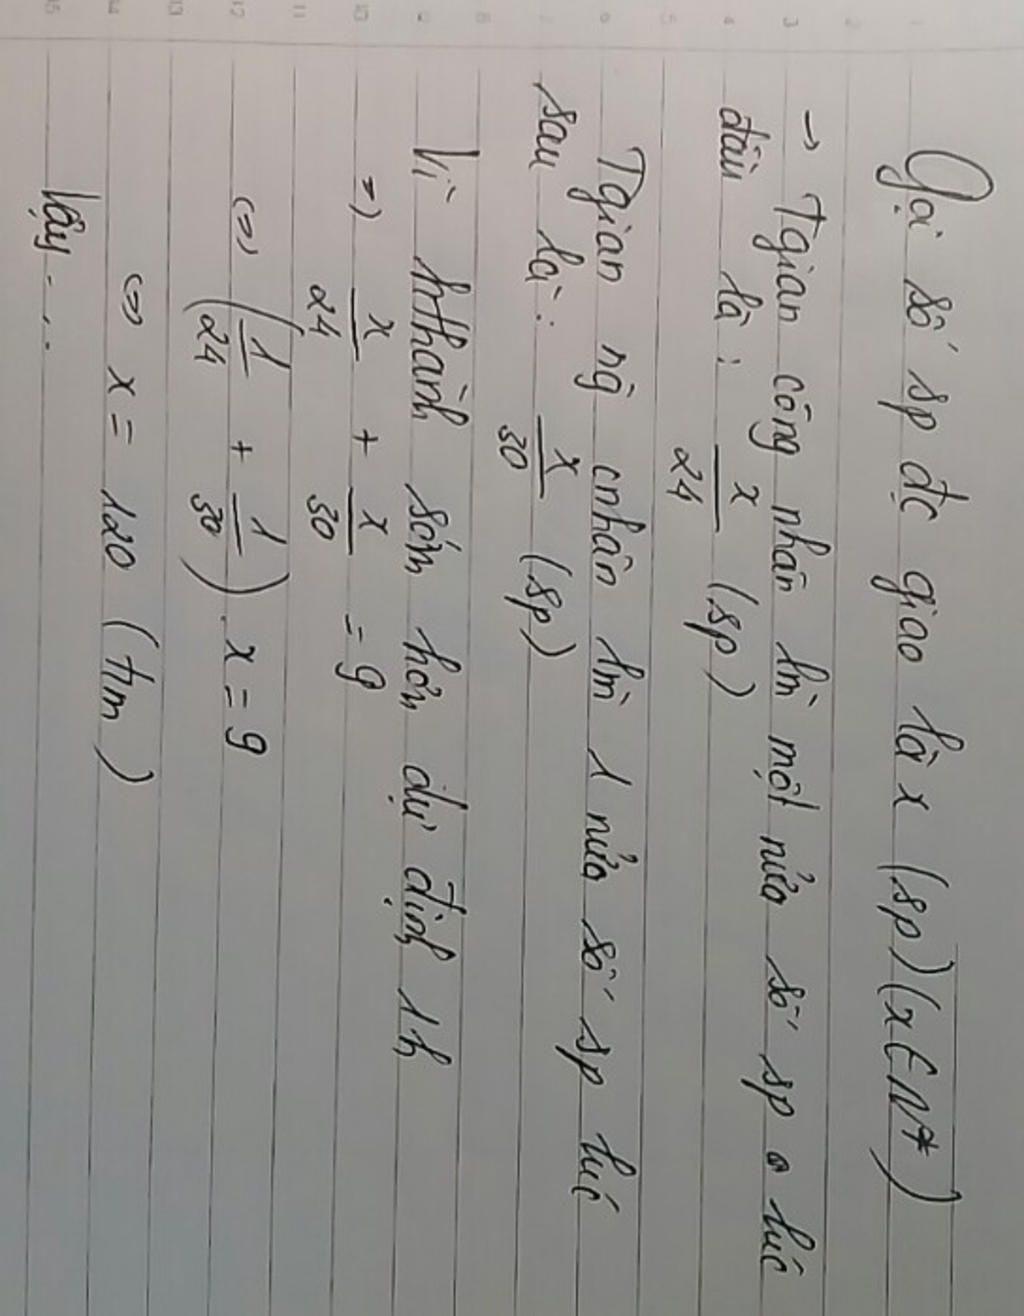 Gọi số sp đc giao là x (sp) (x ∈ N*)
→ Tgian công nhân lm̀ một nửa số sp lúc
đầu là : x/24 (sp)
Tgian ng̀ cnhân lm̀ 1 nửa số sp lúc
sau là : x/30 (sp)
Vì hthành sớm hơn dự định 1h
=> x/24 + x/30 = 9
<=> (1/24 + 1/30) . x = 9
<=> x = 120 (tm)
Vậy ....